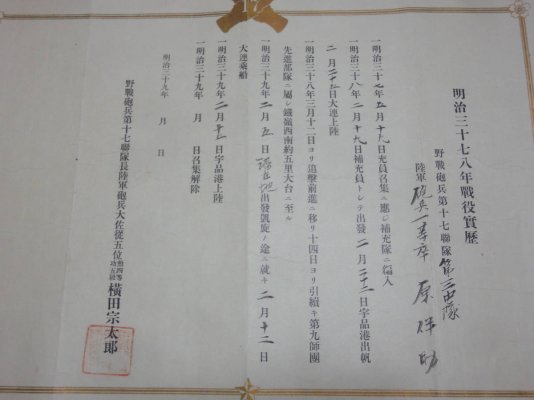 17
明治三十七八年戰役實歷
野戰砲兵第十七聯隊第三中隊
陸軍砲兵一等卒 原 助
一明治三十七年五月十九日充員召集ニ應シ補充隊ニ編入
一明治三十八年二月十九日補充員トシテ出發二月二十二日宇品港出帆
二月二十五日大連上陸
一明治三十八年三月十二日ヨリ追擊前進ニ移リ十四日ヨリ引續キ第九師團
先進部隊ニ屬シ鐵嶺西南約五里大台ニ至ル
一明治三十九年二月五日 地出發凱旋ノ途ニ就キ二月十二日
大連乘船
一明治三十九年二月 日宇品港上陸
一明治三十九年 月 日召集解除
明治三十九年 月 日
野戰砲兵第十七聯隊長陸軍砲兵大佐從五位勳四等功五級橫田宗太郎